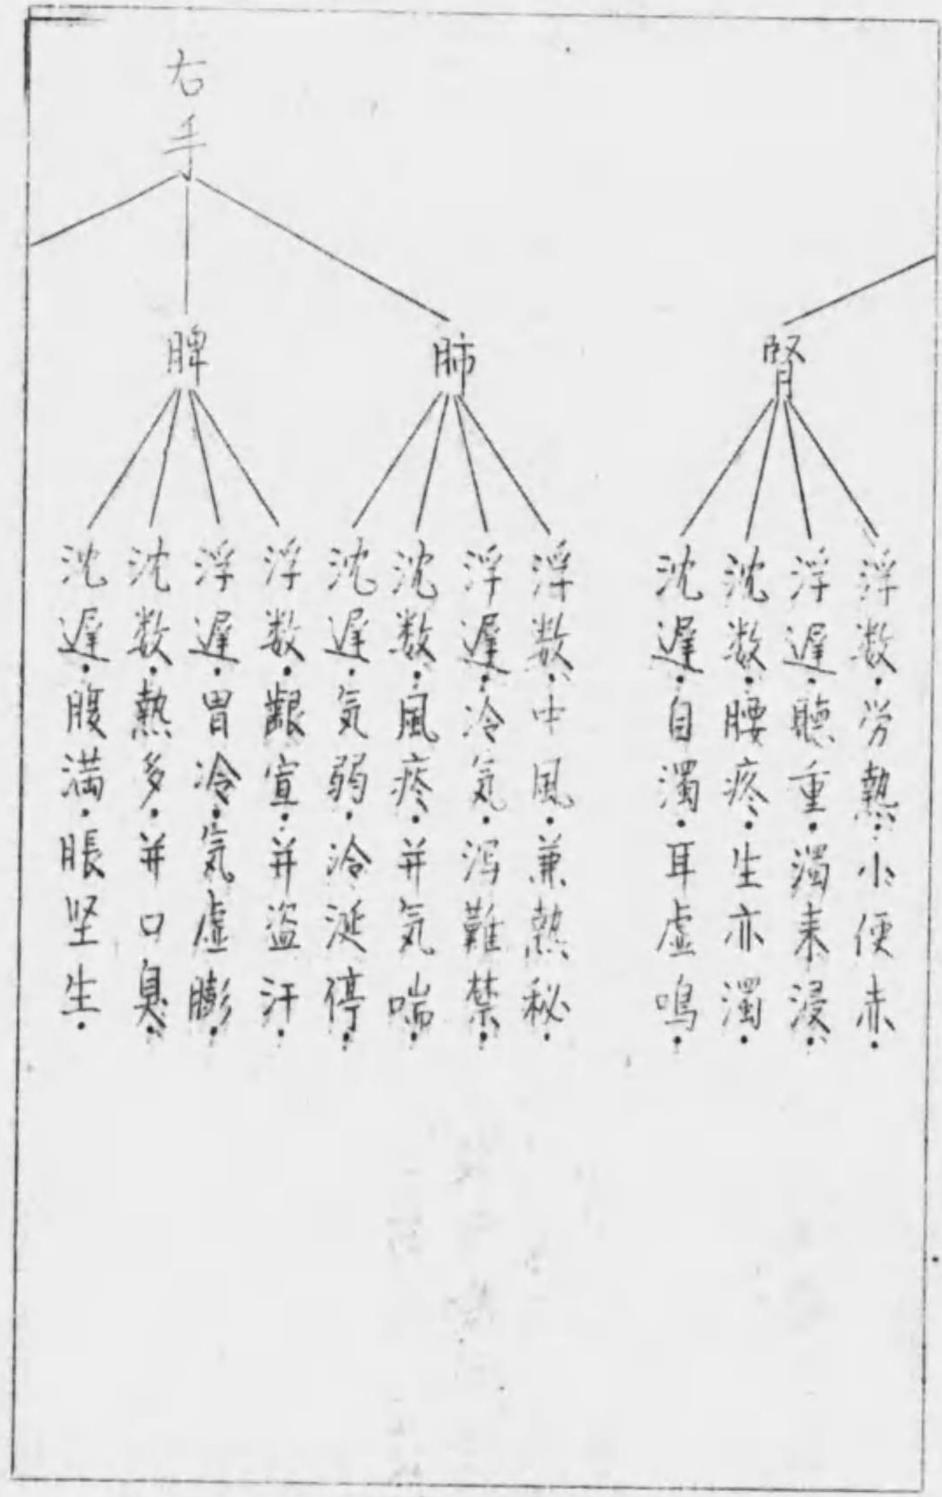 腎
浮数・労熱・小便赤・
浮遅・聴重・濁来浸・
沈数・腰疼・生赤濁・
沈遅・自濁・耳虚鳴・
右手
肺
浮数・中風・兼熱秘・
浮遅・冷気・泻難禁・
沈数・風疼・并気喘・
沈遅・気弱・冷涎停・
脾
浮数・齦宣・并盗汗・
浮遅・胃冷・気虚膨・
沈数・熱多・并口臭・
沈遅・腹満・脹坚生・